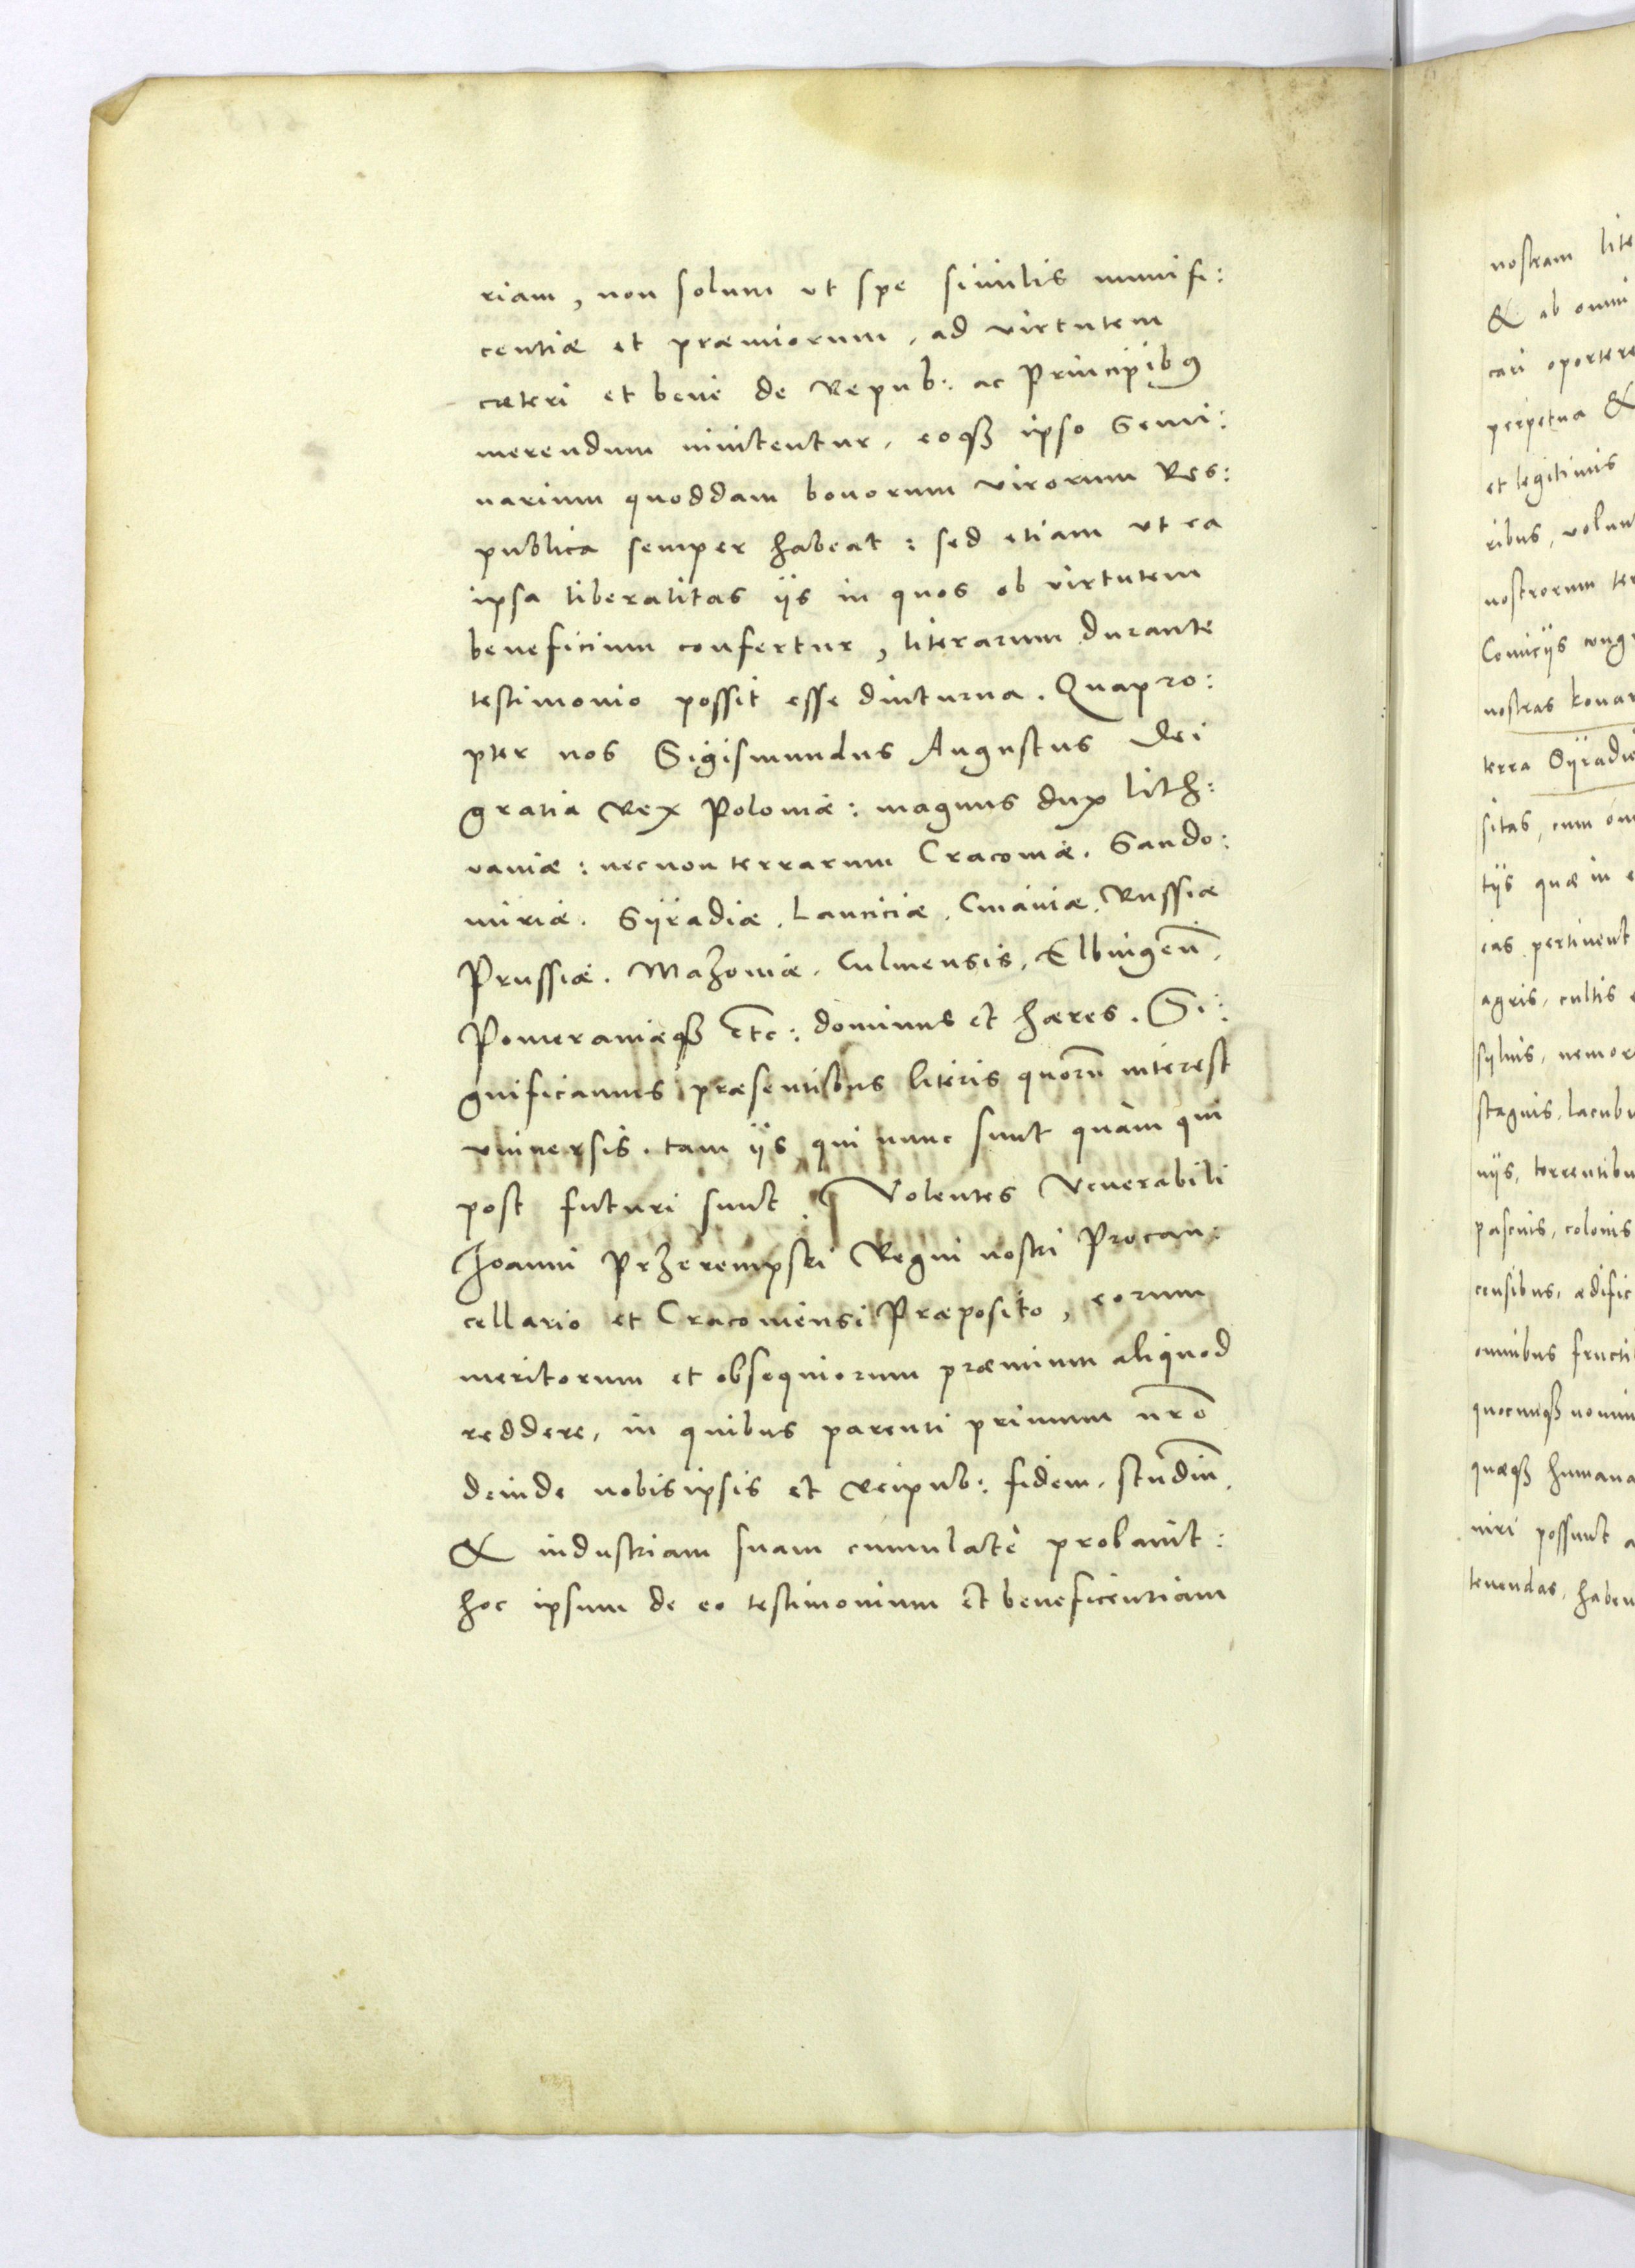 riam, non solum ut spe similis munifi:
centiæ et præmiorum, ad virtutem
cæteri et bene de Repub: ac Principibus
merendum invitentur, eoqȝ ipso Semi:
narium quoddam bonorum virorum Res:
publica semper habeat: sed etiam ut ea
ipsa liberalitas ijs in quos ob virtutem
beneficium confertur, literarum durante
testimonio possit esse diuturna. Quapro:
pter nos Sigismundus Augustus Dei
gratia Rex Poloniæ: magnus dux Lith:
vaniæ: necnon terrarum Cracoviæ. Sando:
miriæ. Syradiæ. Lanciciæ. Cuiaviæ. Russiæ
Prussiæ. Mazoviæ. Culmensis. Elbingen̄.
Pomeraniæqȝ etc: dominus et hæres. Si:
gnificamus præsentibus literis quorū interest
universis. tam ijs qui nunc sunt quàm qui
post futuri sunt. Volentes Venerabili
Joanni Przerempski Regni nostri Procan:
cellario et Cracoviensi Præposito, eorum
meritorum et obsequiorum præmium aliquod
reddere, in quibus parenti primum nr̄o
deinde nobis ipsis et Reipub: fidem, studiū,
& industriam suam cumulatè probavit:
hoc ipsum de eo testimonium et beneficentiam
nostram
& ab omni
cari oportere
perpetua &
et legitimis
ribus,
nostrorum
Comicijs
nostras
terra
sitas, cum
tijs quæ in
pertinent
agris, cultis
sylvis,
stagnis,
torrentibus
pascuis, colonis
censibus,
omnibus
quocunqȝ
quæqȝ humana
niri possunt
tenendas,